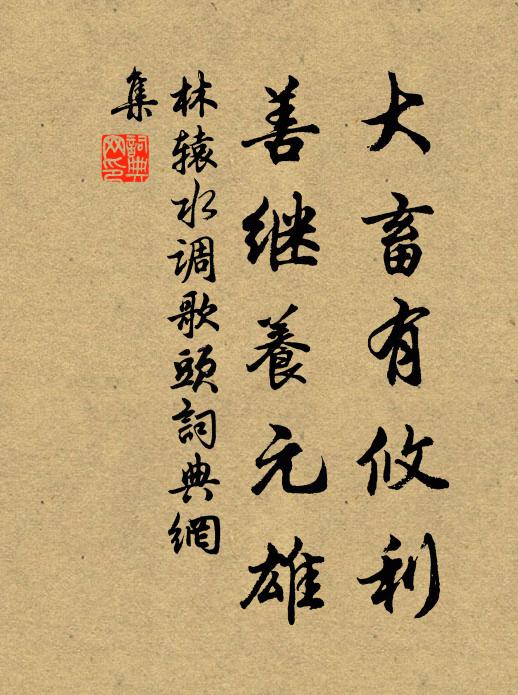 大畜有攸利
善继養元雄
林辕水调歌頭詞典網
集
詞典網印